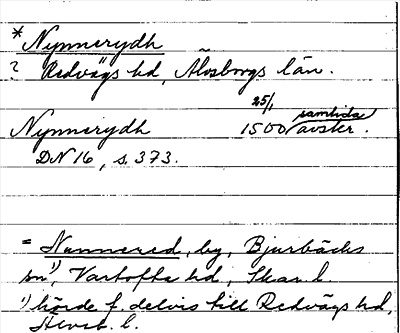 * Nynnerydh
? Redvägs hd, Älvsborgs län.
Nynnerydh 25/1 1500 samtida avskr.
DN 16, s. 373.
= Nunnered, by, Bjurbäcks
sn¹), Vartofta hd, Skar. l.
¹) hörde f. delvis till Redvägs hd,
Älvsb. l.